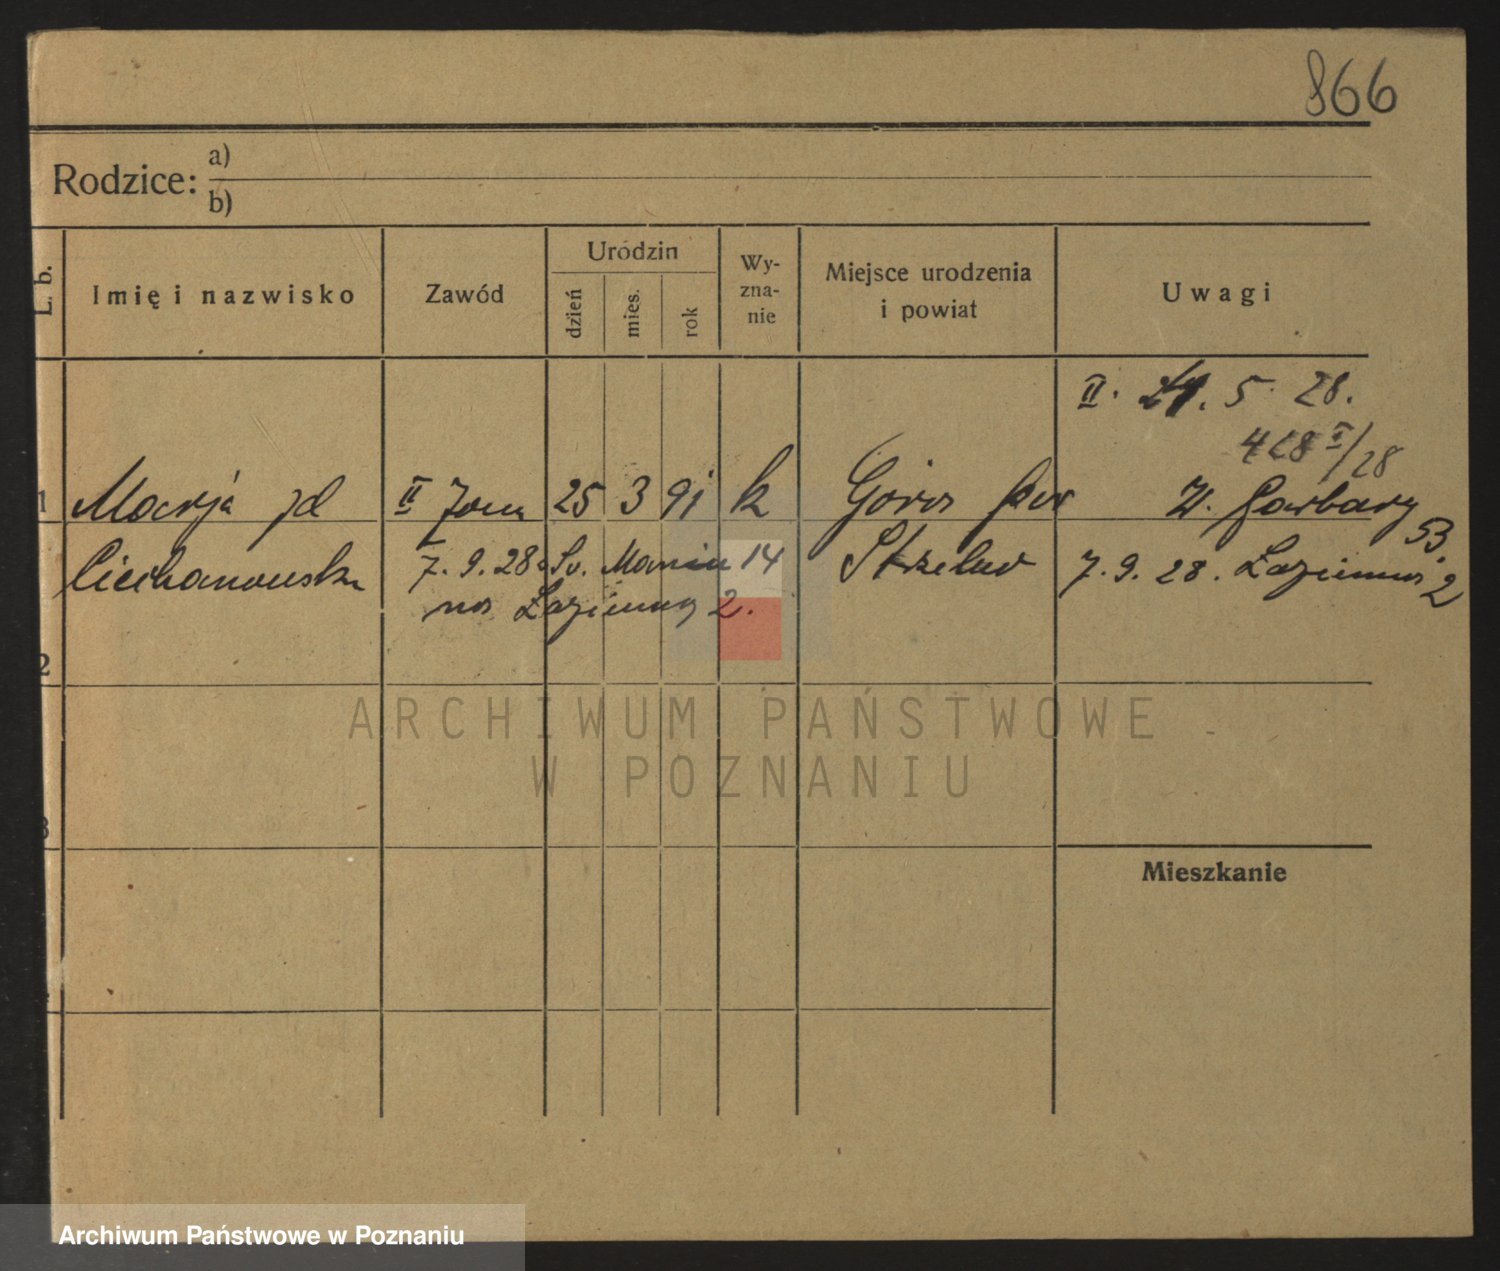 866
Rodzice: a)
b)
L. b. Imię i nazwisko Zawód Urodzin dzień mies. rok Wy-zna-nie Miejsce urodzenia i powiat Uwagi
II. 24. 5. 28.
428 I/28
1 Marja II żona 25 3 91 k Góra pow W. Garbary 53.
Ciechanowska 7. 9. 28 Św. Marcin 14 Strzelno 7. 9. 28. Łazienna 2
na Łazienną 2.
2
3
Mieszkanie
ARCHIWUM PAŃSTWOWE
W POZNANIU
Archiwum Państwowe w Poznaniu